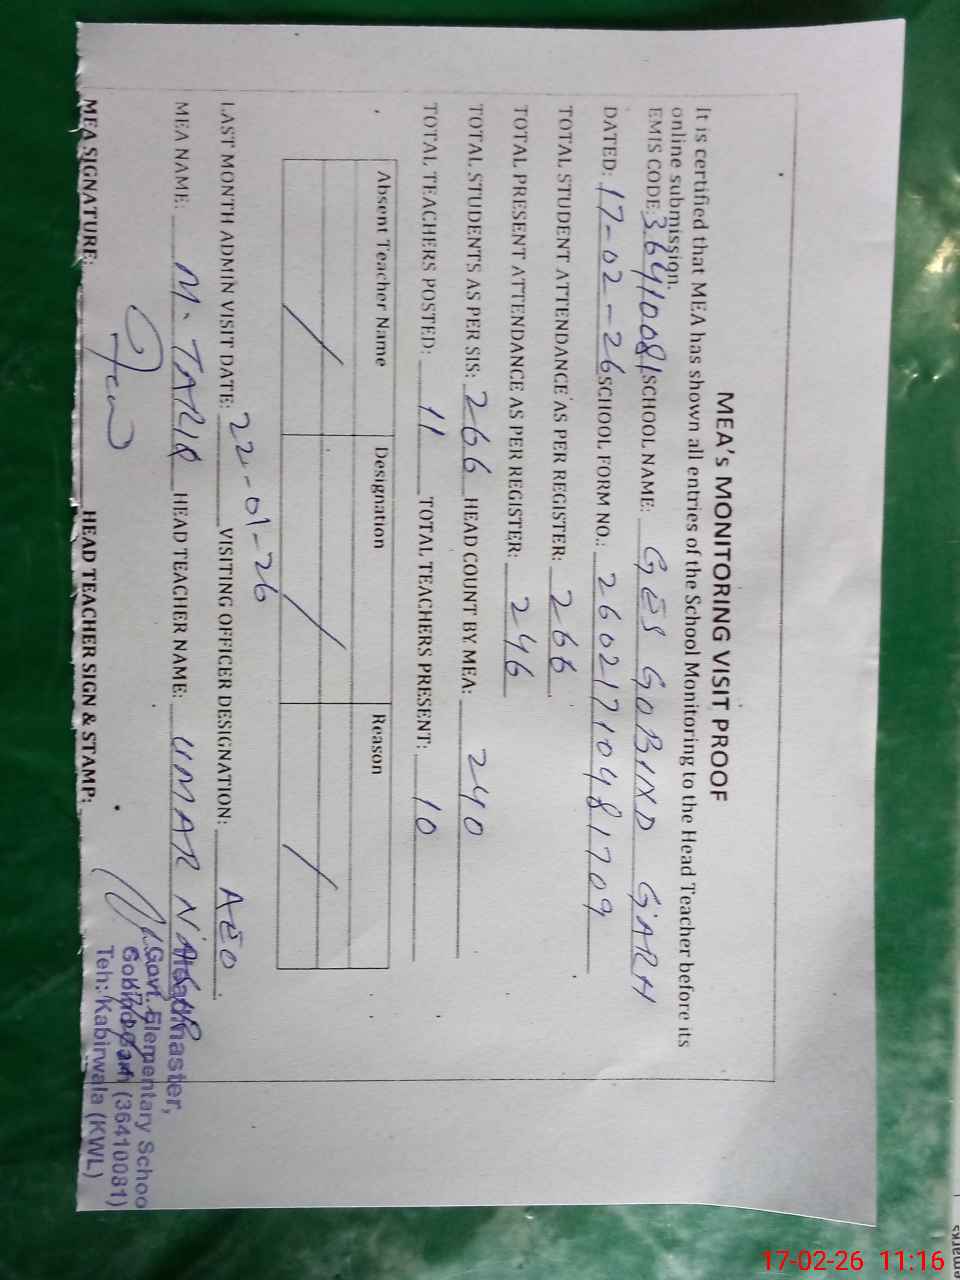 MEA's MONITORING VISIT PROOF
It is certified that MEA has shown all entries of the School Monitoring to the Head Teacher before its
online submission.
EMIS CODE: 36410081 SCHOOL NAME: GES GOBIND GARH
DATED: 17-02-26 SCHOOL FORM NO.: 26021710481709
TOTAL STUDENT ATTENDANCE AS PER REGISTER: 266
TOTAL PRESENT ATTENDANCE AS PER REGISTER: 246
TOTAL STUDENTS AS PER SIS: 266 HEAD COUNT BY MEA: 240
TOTAL TEACHERS POSTED: 11 TOTAL TEACHERS PRESENT: 10
Absent Teacher Name Designation Reason
/ / /
LAST MONTH ADMIN VISIT DATE: 22-01-26 VISITING OFFICER DESIGNATION: AEO
MEA NAME: M. TARIQ HEAD TEACHER NAME: UMAR
MEA SIGNATURE: HEAD TEACHER SIGN & STAMP:
Headmaster,
Govt. Elementary Schoo
Gobindgarh (36410081)
Teh: Kabirwala (KWL)
17-02-26 11:16